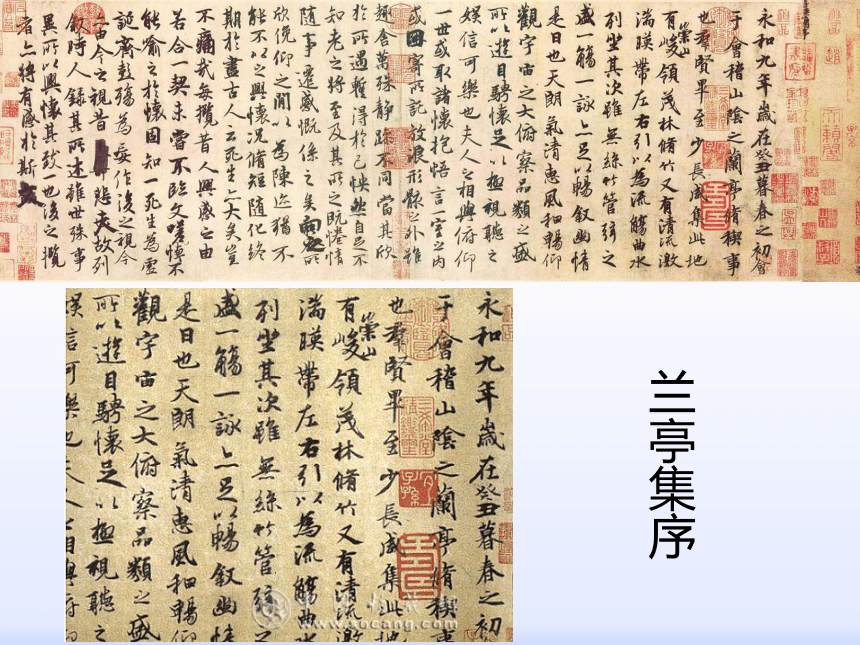 永和九年歲在癸丑暮春之初會
于會稽山陰之蘭亭脩稧事
也羣賢畢至少長咸集此地
有崇山峻領茂林脩竹又有清流激
湍暎帶左右引以為流觴曲水
列坐其次雖無絲竹管弦之
盛一觴一詠亦足以暢敘幽情
是日也天朗氣清惠風和暢仰
觀宇宙之大俯察品類之盛
所以遊目騁懷足以極視聽之
娛信可樂也夫人之相與俯仰
一世或取諸懷抱悟言一室之內
或因寄所託放浪形骸之外雖
趣舍萬殊靜躁不同當其欣
於所遇暫得於己怏然自足不
知老之將至及其所之既惓情
隨事遷感慨係之矣向之所
欣俛仰之閒以為陳迹猶不
能不以之興懷況脩短隨化終
期於盡古人云死生亦大矣豈
不痛哉每攬昔人興感之由
若合一契未嘗不臨文嗟悼不
能喻之於懷固知一死生為虛
誕齊彭殤為妄作後之視今
亦由今之視昔悲夫故列
敘時人錄其所述雖世殊事
異所以興懷其致一也後之攬
者亦將有感於斯文
永和九年歲在癸丑暮春之初
于會稽山陰之蘭亭脩稧事
也羣賢畢至少長咸集此地
有崇山峻領茂林脩竹又有清流激
湍暎帶左右引以為流觴曲水
列坐其次雖無絲竹管弦之
盛一觴一詠亦足以暢敘幽情
是日也天朗氣清惠風和暢仰
觀宇宙之大俯察品類之盛
所以遊目騁懷足以極視聽之
娛信可樂也夫人之相與俯
www.socang.com
兰亭集序